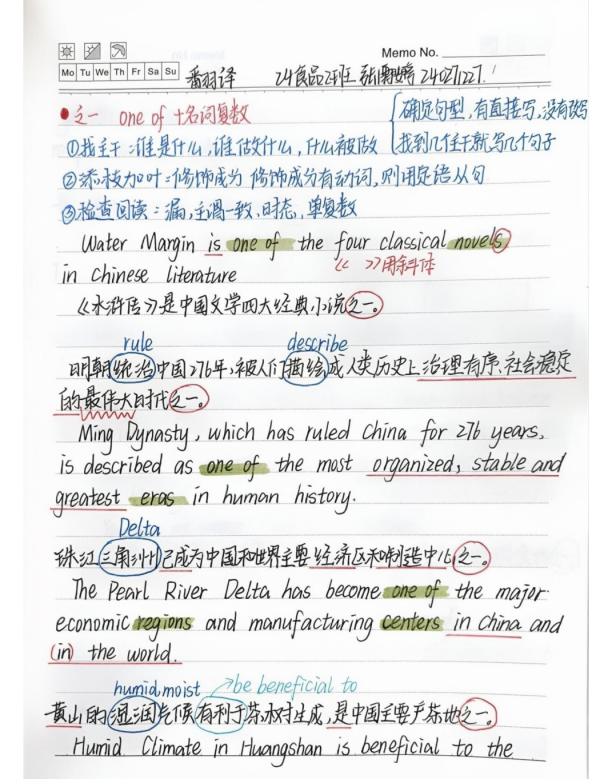 Memo No.
Mo Tu We Th Fr Sa Su
番羽译 24食品2班 张 240271227.
之一 one of +名词复数
确定句型,有直接写,没有改写
①找主干:谁是什么,谁做什么,什么被做
找到几个主干就写几个句子
②添枝加叶:修饰成分 修饰成分有动词,则用定语从句
③检查回读:漏,主谓一致,时态,单复数
Water Margin is one of the four classical novels
in Chinese literature
《 》用斜体
《水浒传》是中国文学四大经典小说之一。
rule describe
明朝统治中国276年,被人们描绘成人类历史上治理有序、社会稳定
的最伟大时代之一。
Ming Dynasty, which has ruled China for 276 years,
is described as one of the most organized, stable and
greatest eras in human history.
Delta
珠江三角洲已成为中国和世界主要经济区和制造中心之一。
The Pearl River Delta has become one of the major
economic regions and manufacturing centers in china and
(in) the world.
humid, moist be beneficial to
黄山的湿润气候有利于茶树生成,是中国主要产茶地之一。
Humid Climate in Huangshan is beneficial to the